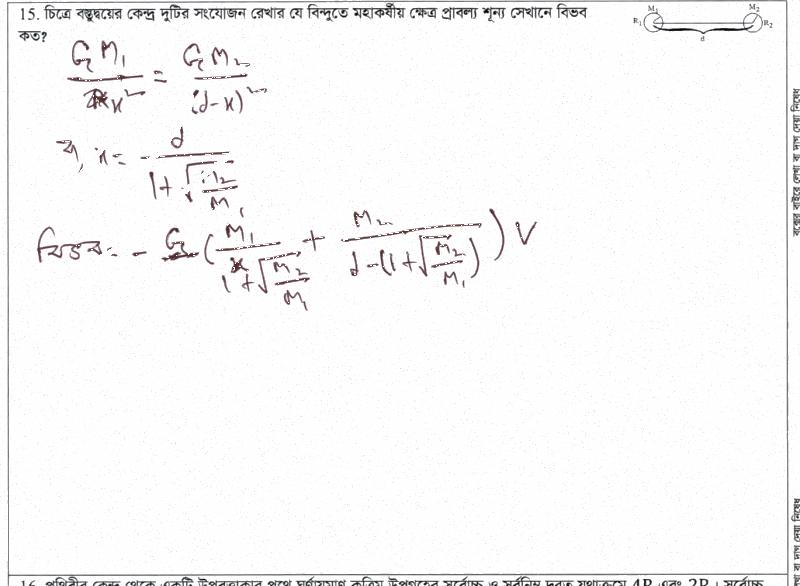 15. চিত্রে বস্তুদ্বয়ের কেন্দ্র দুটির সংযোজন রেখার যে বিন্দুতে মহাকর্ষীয় ক্ষেত্র প্রাবল্য শূন্য সেখানে বিভব
কত?
M₁ M₂
R₁ R₂
d
GM₁/x² = GM₂/(d-x)²
বা, x = d/(1+√(M₂/M₁))
বিভব = - G (M₁/(1+√(M₂/M₁)) + M₂/(d-(1+√(M₂/M₁)))) V
16. পৃথিবীর কেন্দ্র থেকে একটি উপবৃত্তাকার পথে ঘূর্ণায়মান কৃত্রিম উপগ্রহের সর্বোচ্চ ও সর্বনিম্ন দূরত্ব যথাক্রমে 4R এবং 2R । সর্বোচ্চ